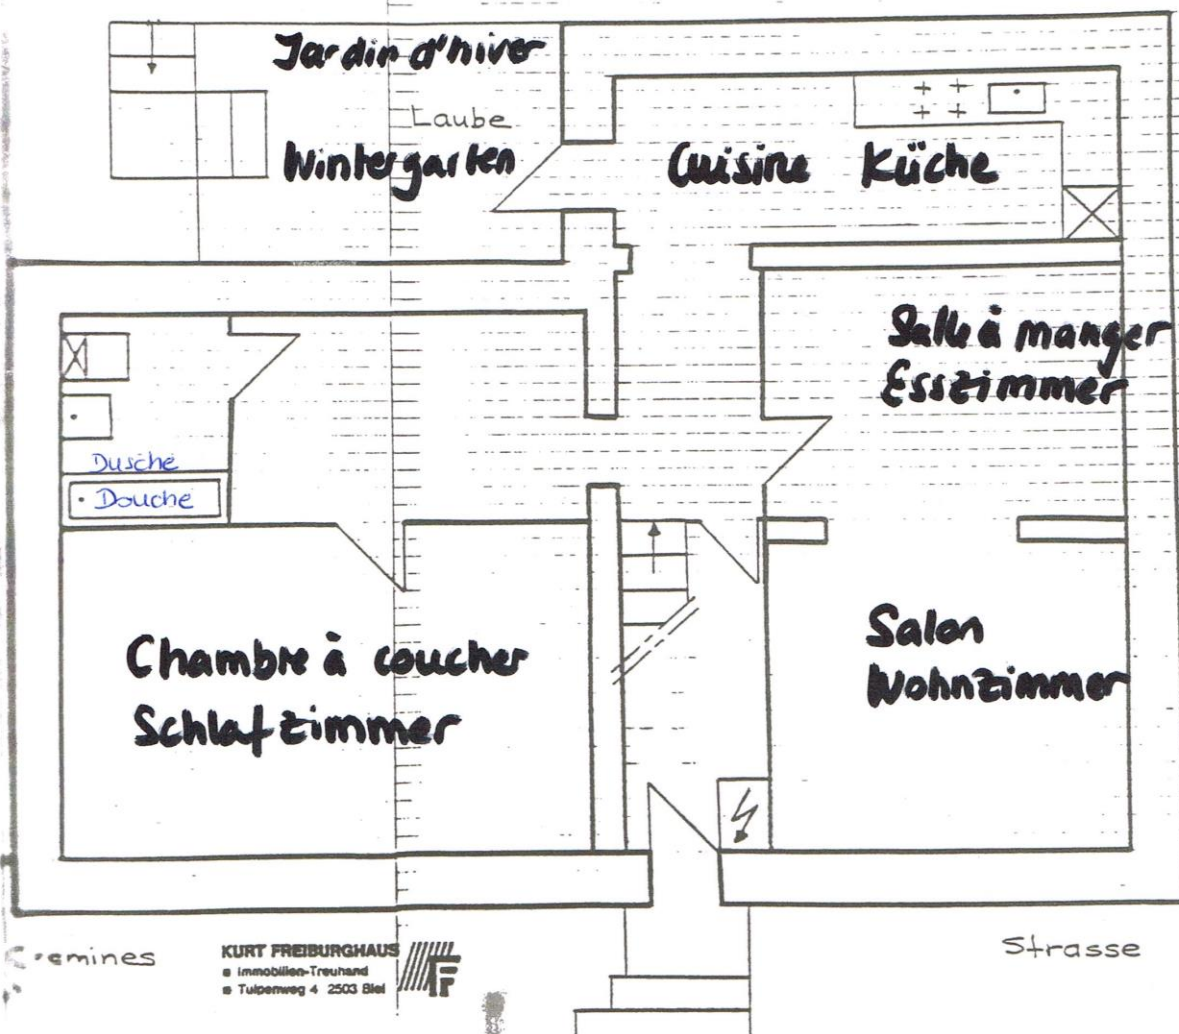 Jardin d'hiver
Laube
Wintergarten
Cuisine Küche
Salle à manger
Esszimmer
Dusche
Douche
Chambre à coucher
Schlafzimmer
Salon
Wohnzimmer
KURT FREIBURGHAUS
Immobilien-Treuhand
Tulpenweg 4 2503 Biel
Strasse